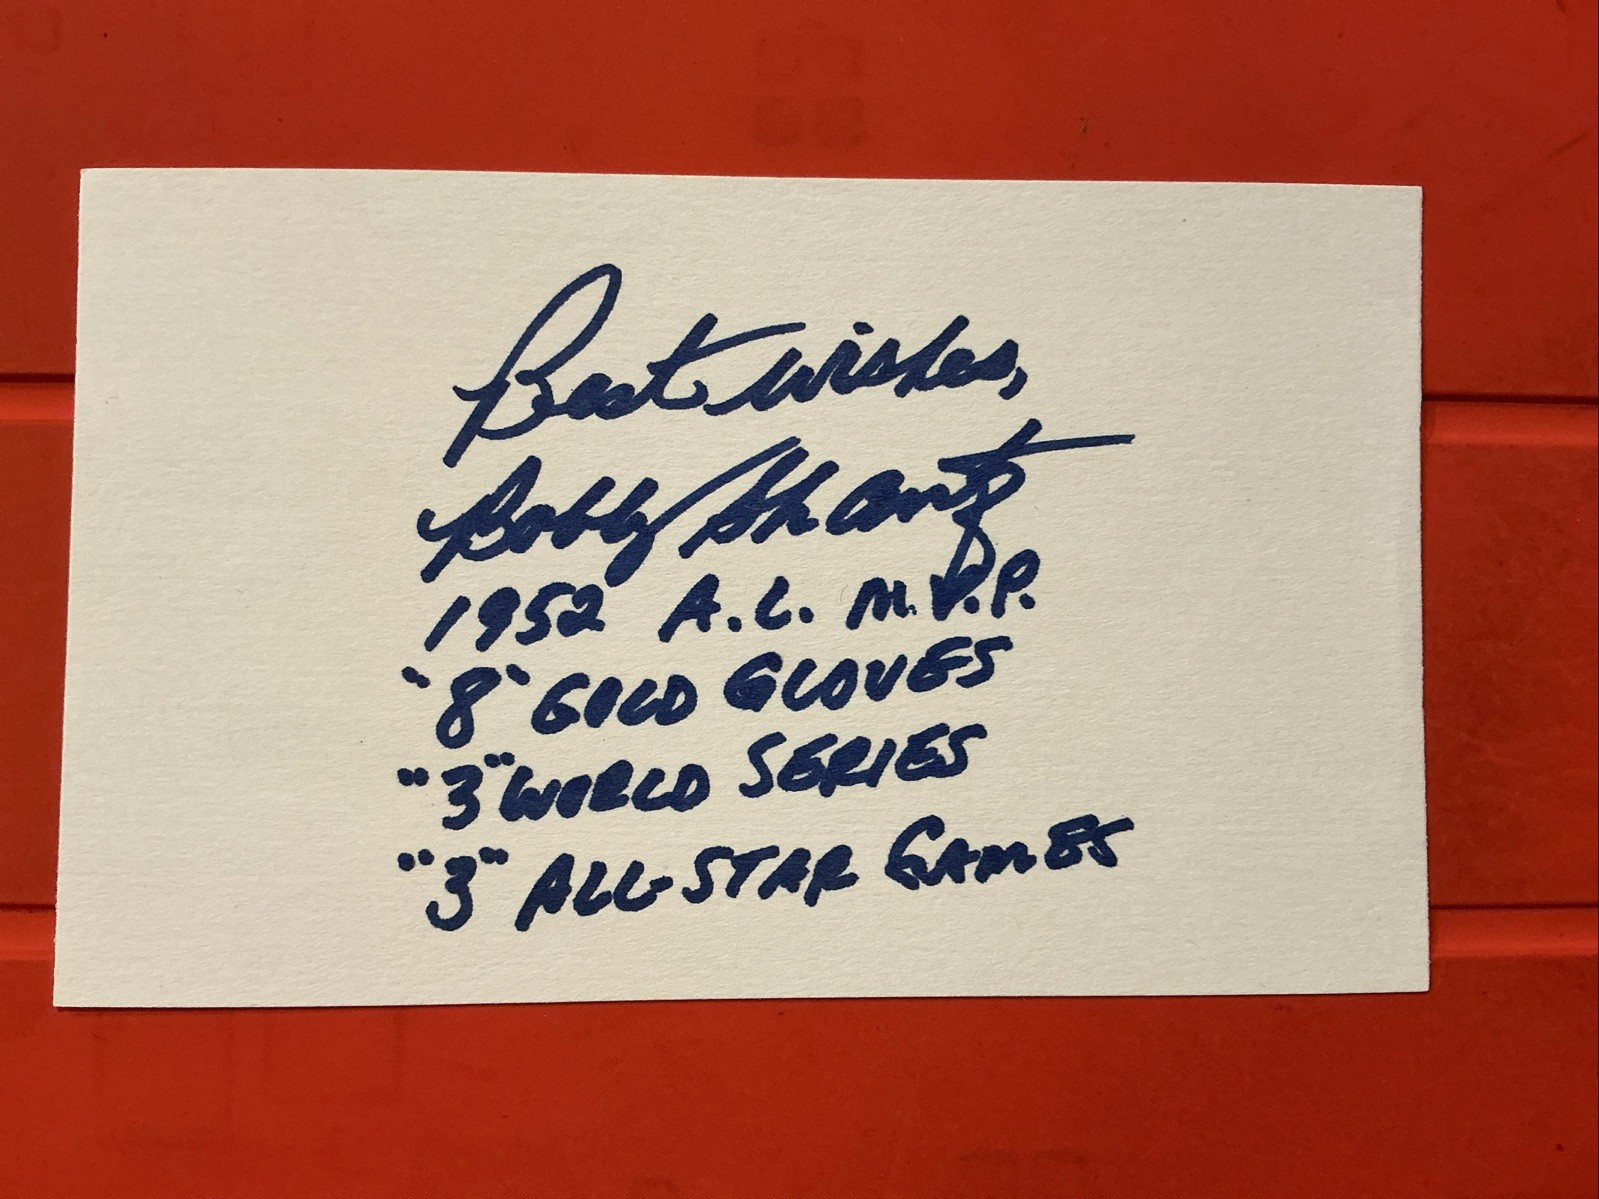 Best wishes,
Bobby Shantz
1952 A.L. M.V.P.
"8" GOLD GLOVES
"3" WORLD SERIES
"3" ALL-STAR GAMES